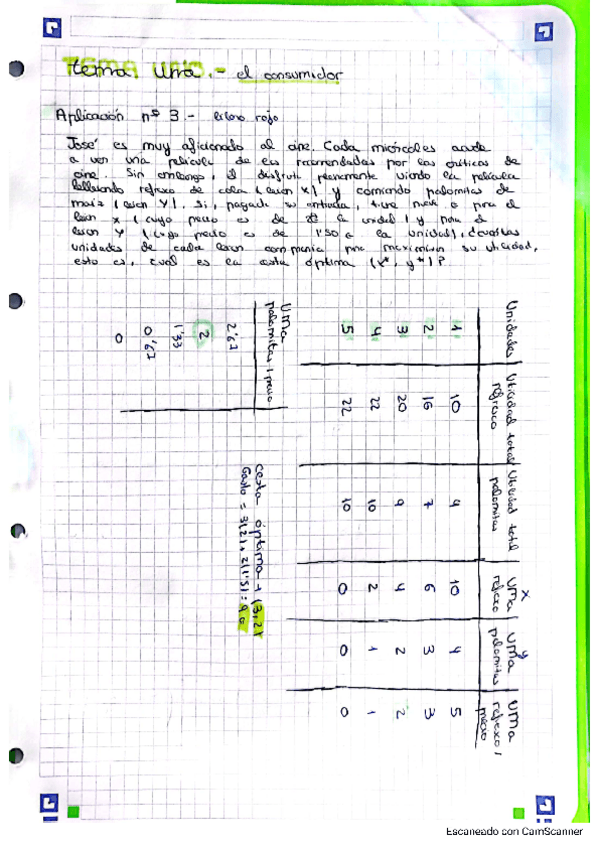 tema uno.- el consumidor
Aplicación nº 3.-
José es muy aficionado al cine. Cada miércoles acude
a ver una película de las recomendadas por los críticos de
cine. Sin embargo, él disfruta plenamente viendo la película
refresco de cola (bien X) y comiendo palomitas de
maíz (bien Y). Si, pagada su entrada, tiene para el
bien X (cuyo precio es de la unidad) y para el
bien Y (cuyo precio es de 1'50 a la unidad), cuántas
unidades de cada bien compraría para maximizar su utilidad,
esto es, cuál es la cesta óptima (x*, y*)?
Unidades | Utilidad total refresco | Utilidad total palomitas | UMa x refresco | UMa y palomitas | UMa refresco / precio
1 | 10 | 4 | 10 | 4 | 5
2 | 16 | 7 | 6 | 3 | 3
3 | 20 | 9 | 4 | 2 | 2
4 | 22 | 10 | 2 | 1 | 1
5 | 22 | 10 | 0 | 0 | 0
UMa palomitas / precio
2'67
2
1'33
0'67
0
cesta óptima → (3,2)
Gasto = 3(2) + 2(1'5) = 9
Escaneado con CamScanner